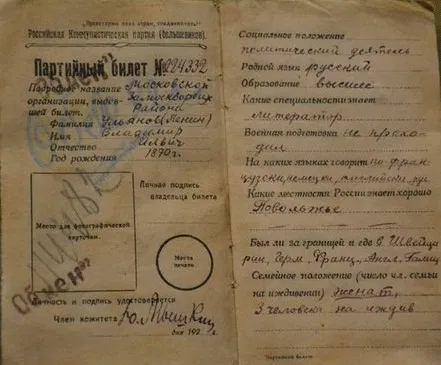 „Пролетарии всех стран, соединяйтесь!"
Российская Коммунистическая партия (большевиков).
Партийный билет № 224332
Подробное название Московской
организации, выдав- Замоскворецк
шей билет. Района
Фамилия Ульянов (Ленин)
Имя Владимир
Отчество Ильич
Год рождения 1870 г.
Личная подпись
владельца билета
Место для фотографической
карточки.
Место
печати
Обмен
Личность и подпись удостоверяется
Член комитета
дня 192 г.
Социальное положение
политический деятель
Родной язык русский
Образование высшее
Какие специальности знает
литератор
Военная подготовка не прохо-
дил
На каких языках говорит по-фран-
цузски, немецки, английски, рус
Какие местности России знает хорошо
Поволжье
Был ли за границей и где в Швейца
рии, Герм., Франц., Англ., Галиц
Семейное положение (число чл. семьи
на иждивении) женат,
3 человека на иждив
Партийный билет